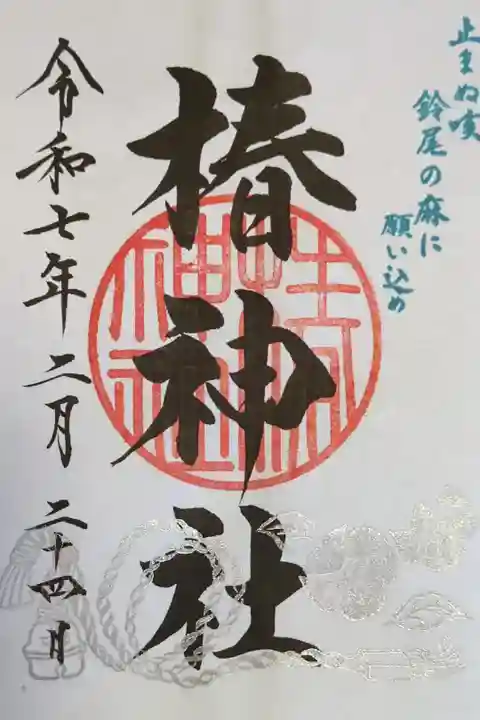 止まぬ咳
鈴尾の麻に
願い込め
椿神社
令和七年二月二十四日